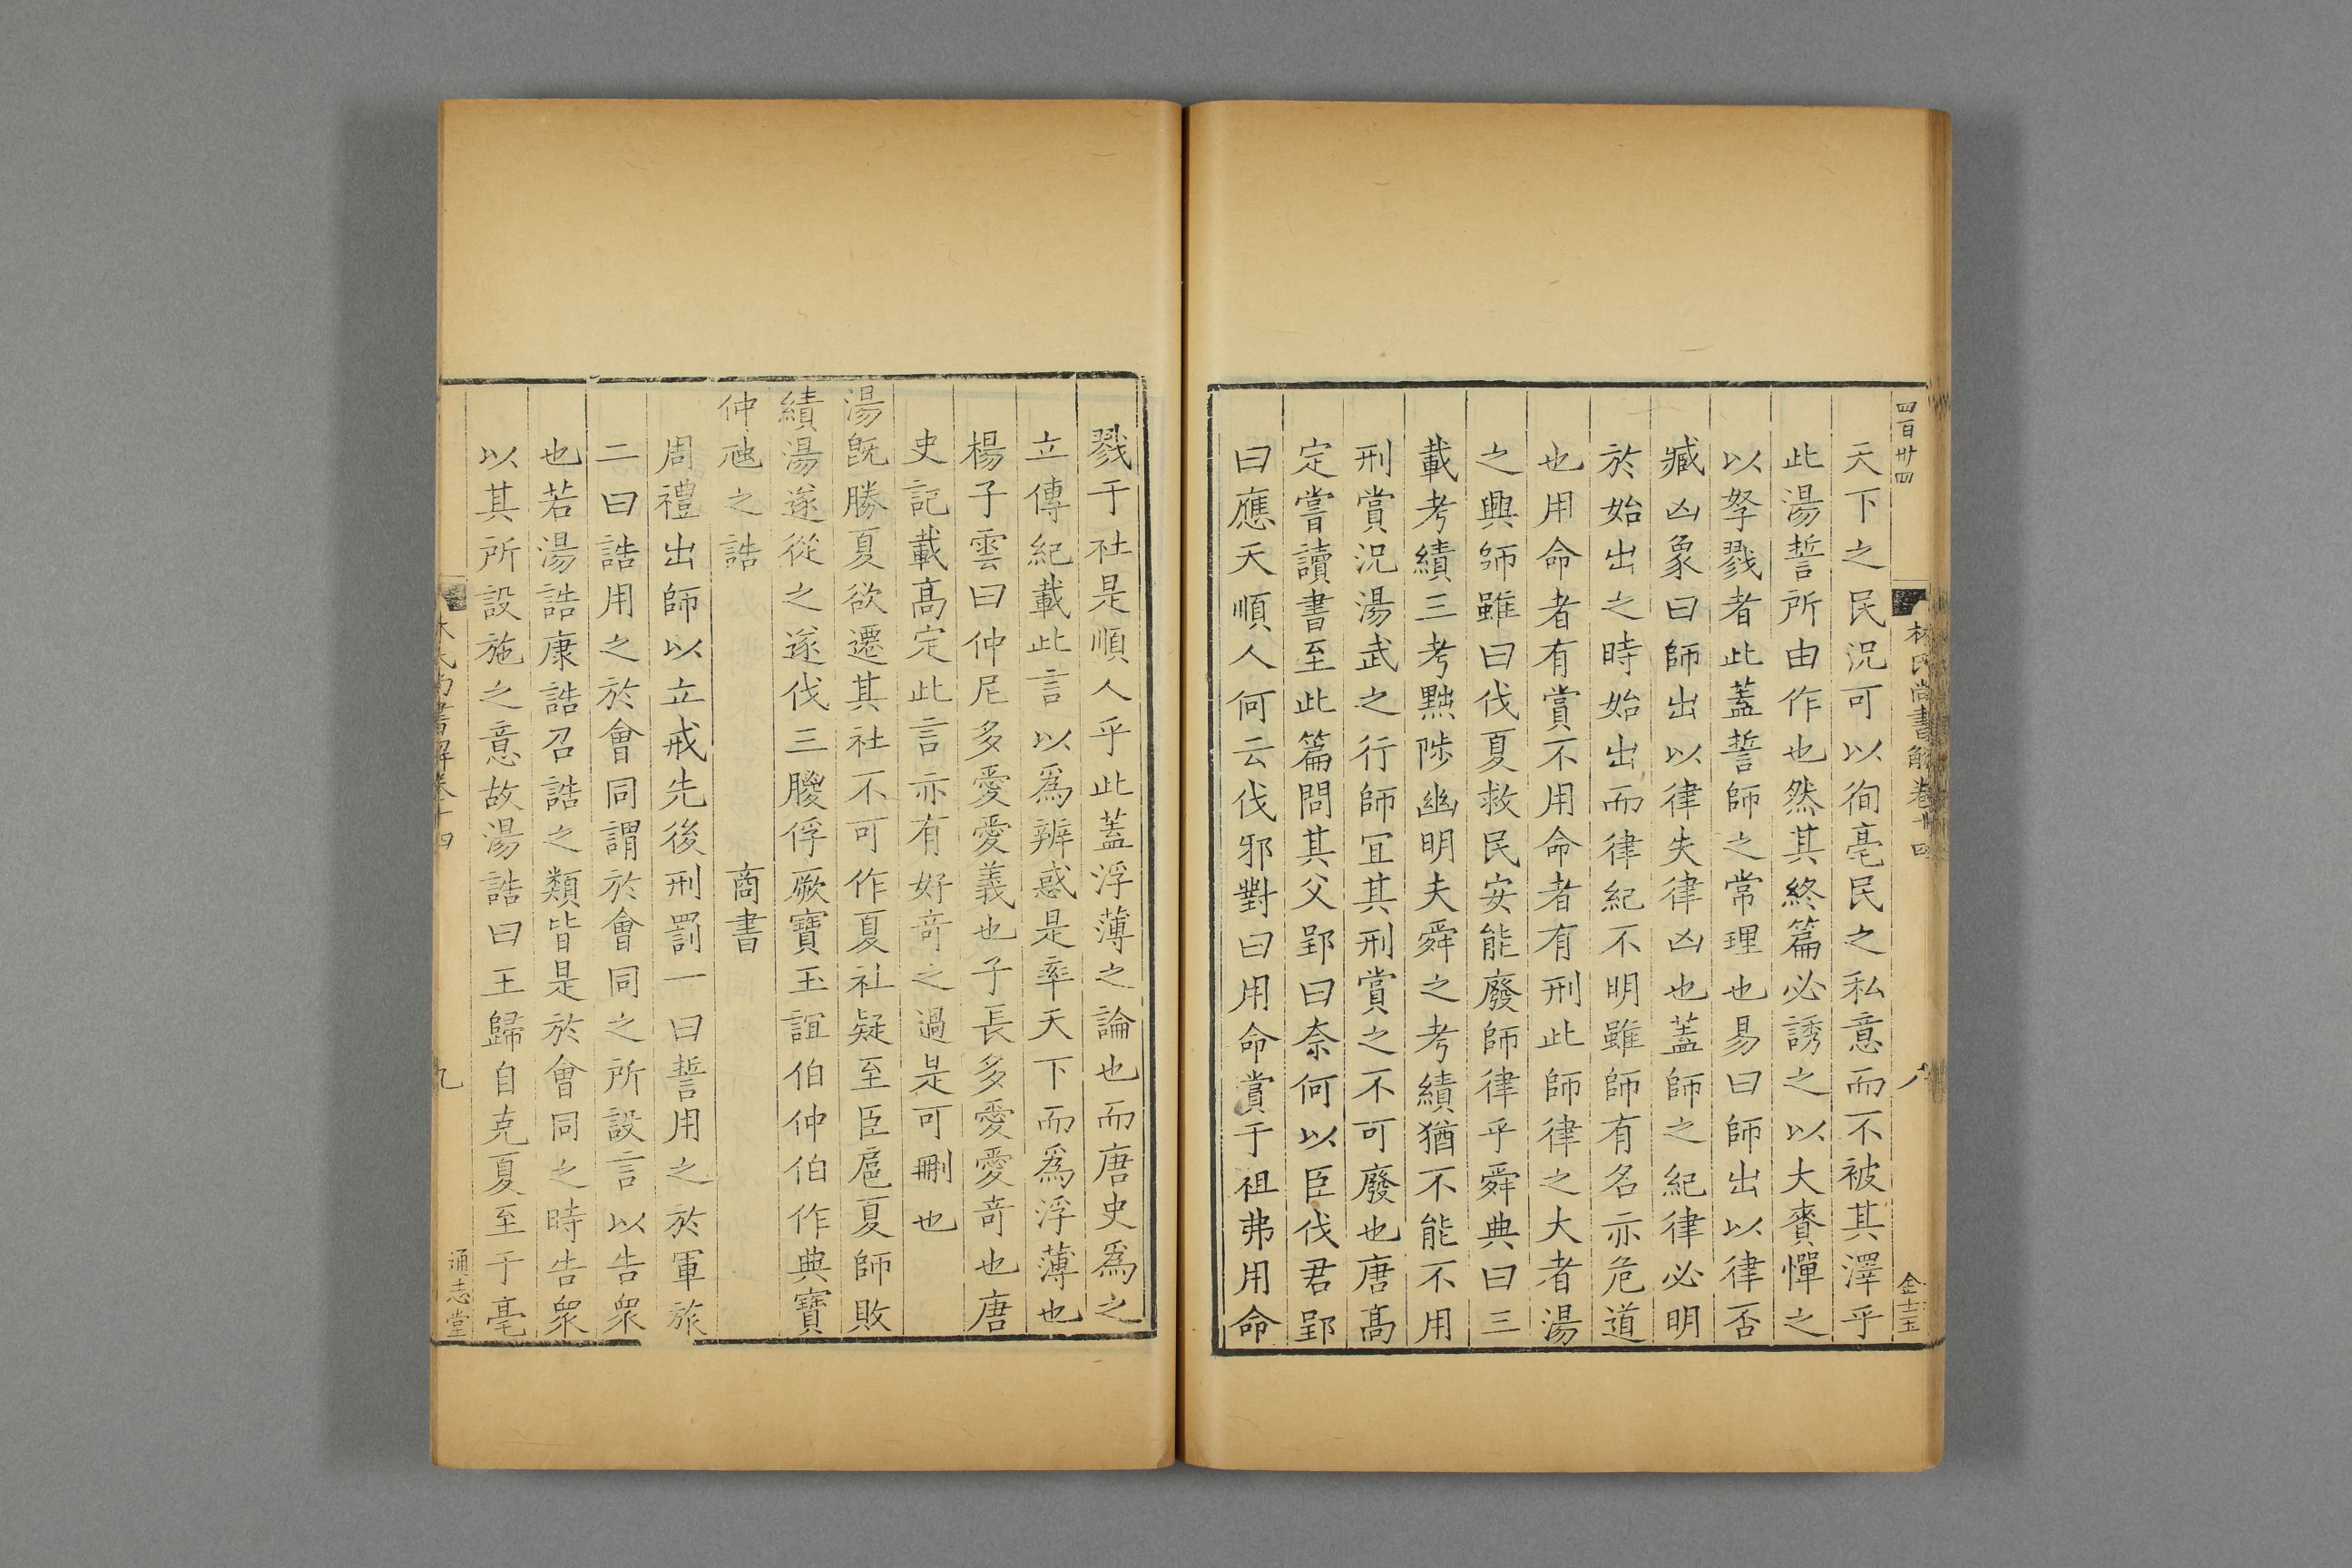 四百卅四
林氏尚書解卷十四
八
金士玉
天下之民況可以徇亳民之私意而不被其澤乎
此湯誓所由作也然其終篇必誘之以大賚憚之
以孥戮者此蓋誓師之常理也易曰師出以律否
臧凶象曰師出以律失律凶也蓋師之紀律必明
於始出之時始出而律紀不明雖師有名亦危道
也用命者有賞不用命者有刑此師律之大者湯
之興師雖曰伐夏救民安能廢師律乎舜典曰三
載考績三考黜陟幽明夫舜之考績猶不能不用
刑賞況湯武之行師宜其刑賞之不可廢也唐高
定嘗讀書至此篇問其父郢曰奈何以臣伐君郢
曰應天順人何云伐邪對曰用命賞于祖弗用命
戮于社是順人乎此蓋浮薄之論也而唐史爲之
立傳紀載此言以爲辨惑是率天下而爲浮薄也
楊子雲曰仲尼多愛愛義也子長多愛愛奇也唐
史記載高定此言亦有好奇之過是可刪也
湯旣勝夏欲遷其社不可作夏社疑至臣扈夏師敗
績湯遂從之遂伐三朡俘厥寶玉誼伯仲伯作典寶
仲虺之誥 商書
周禮出師以立戒先後刑罰一曰誓用之於軍旅
二曰誥用之於會同謂於會同之所設言以告衆
也若湯誥康誥召誥之類皆是於會同之時告衆
以其所設施之意故湯誥曰王歸自克夏至于亳
林氏尚書解卷十四
九
通志堂